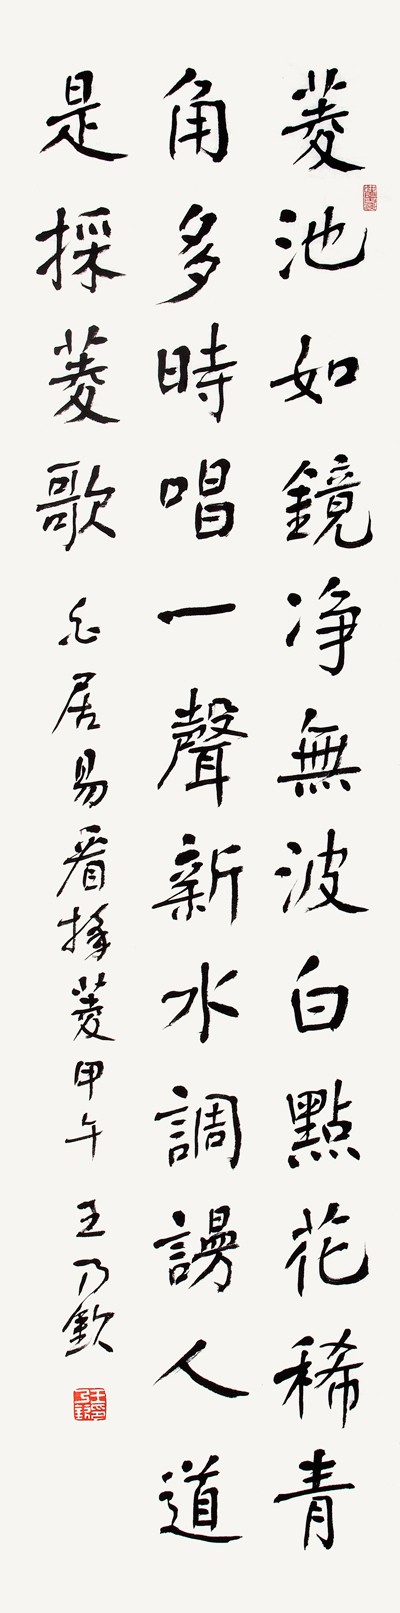 菱池如鏡净無波白點花稀青
角多時唱一聲新水調謾人道
是採菱歌
白居易看採菱甲午 王乃欽